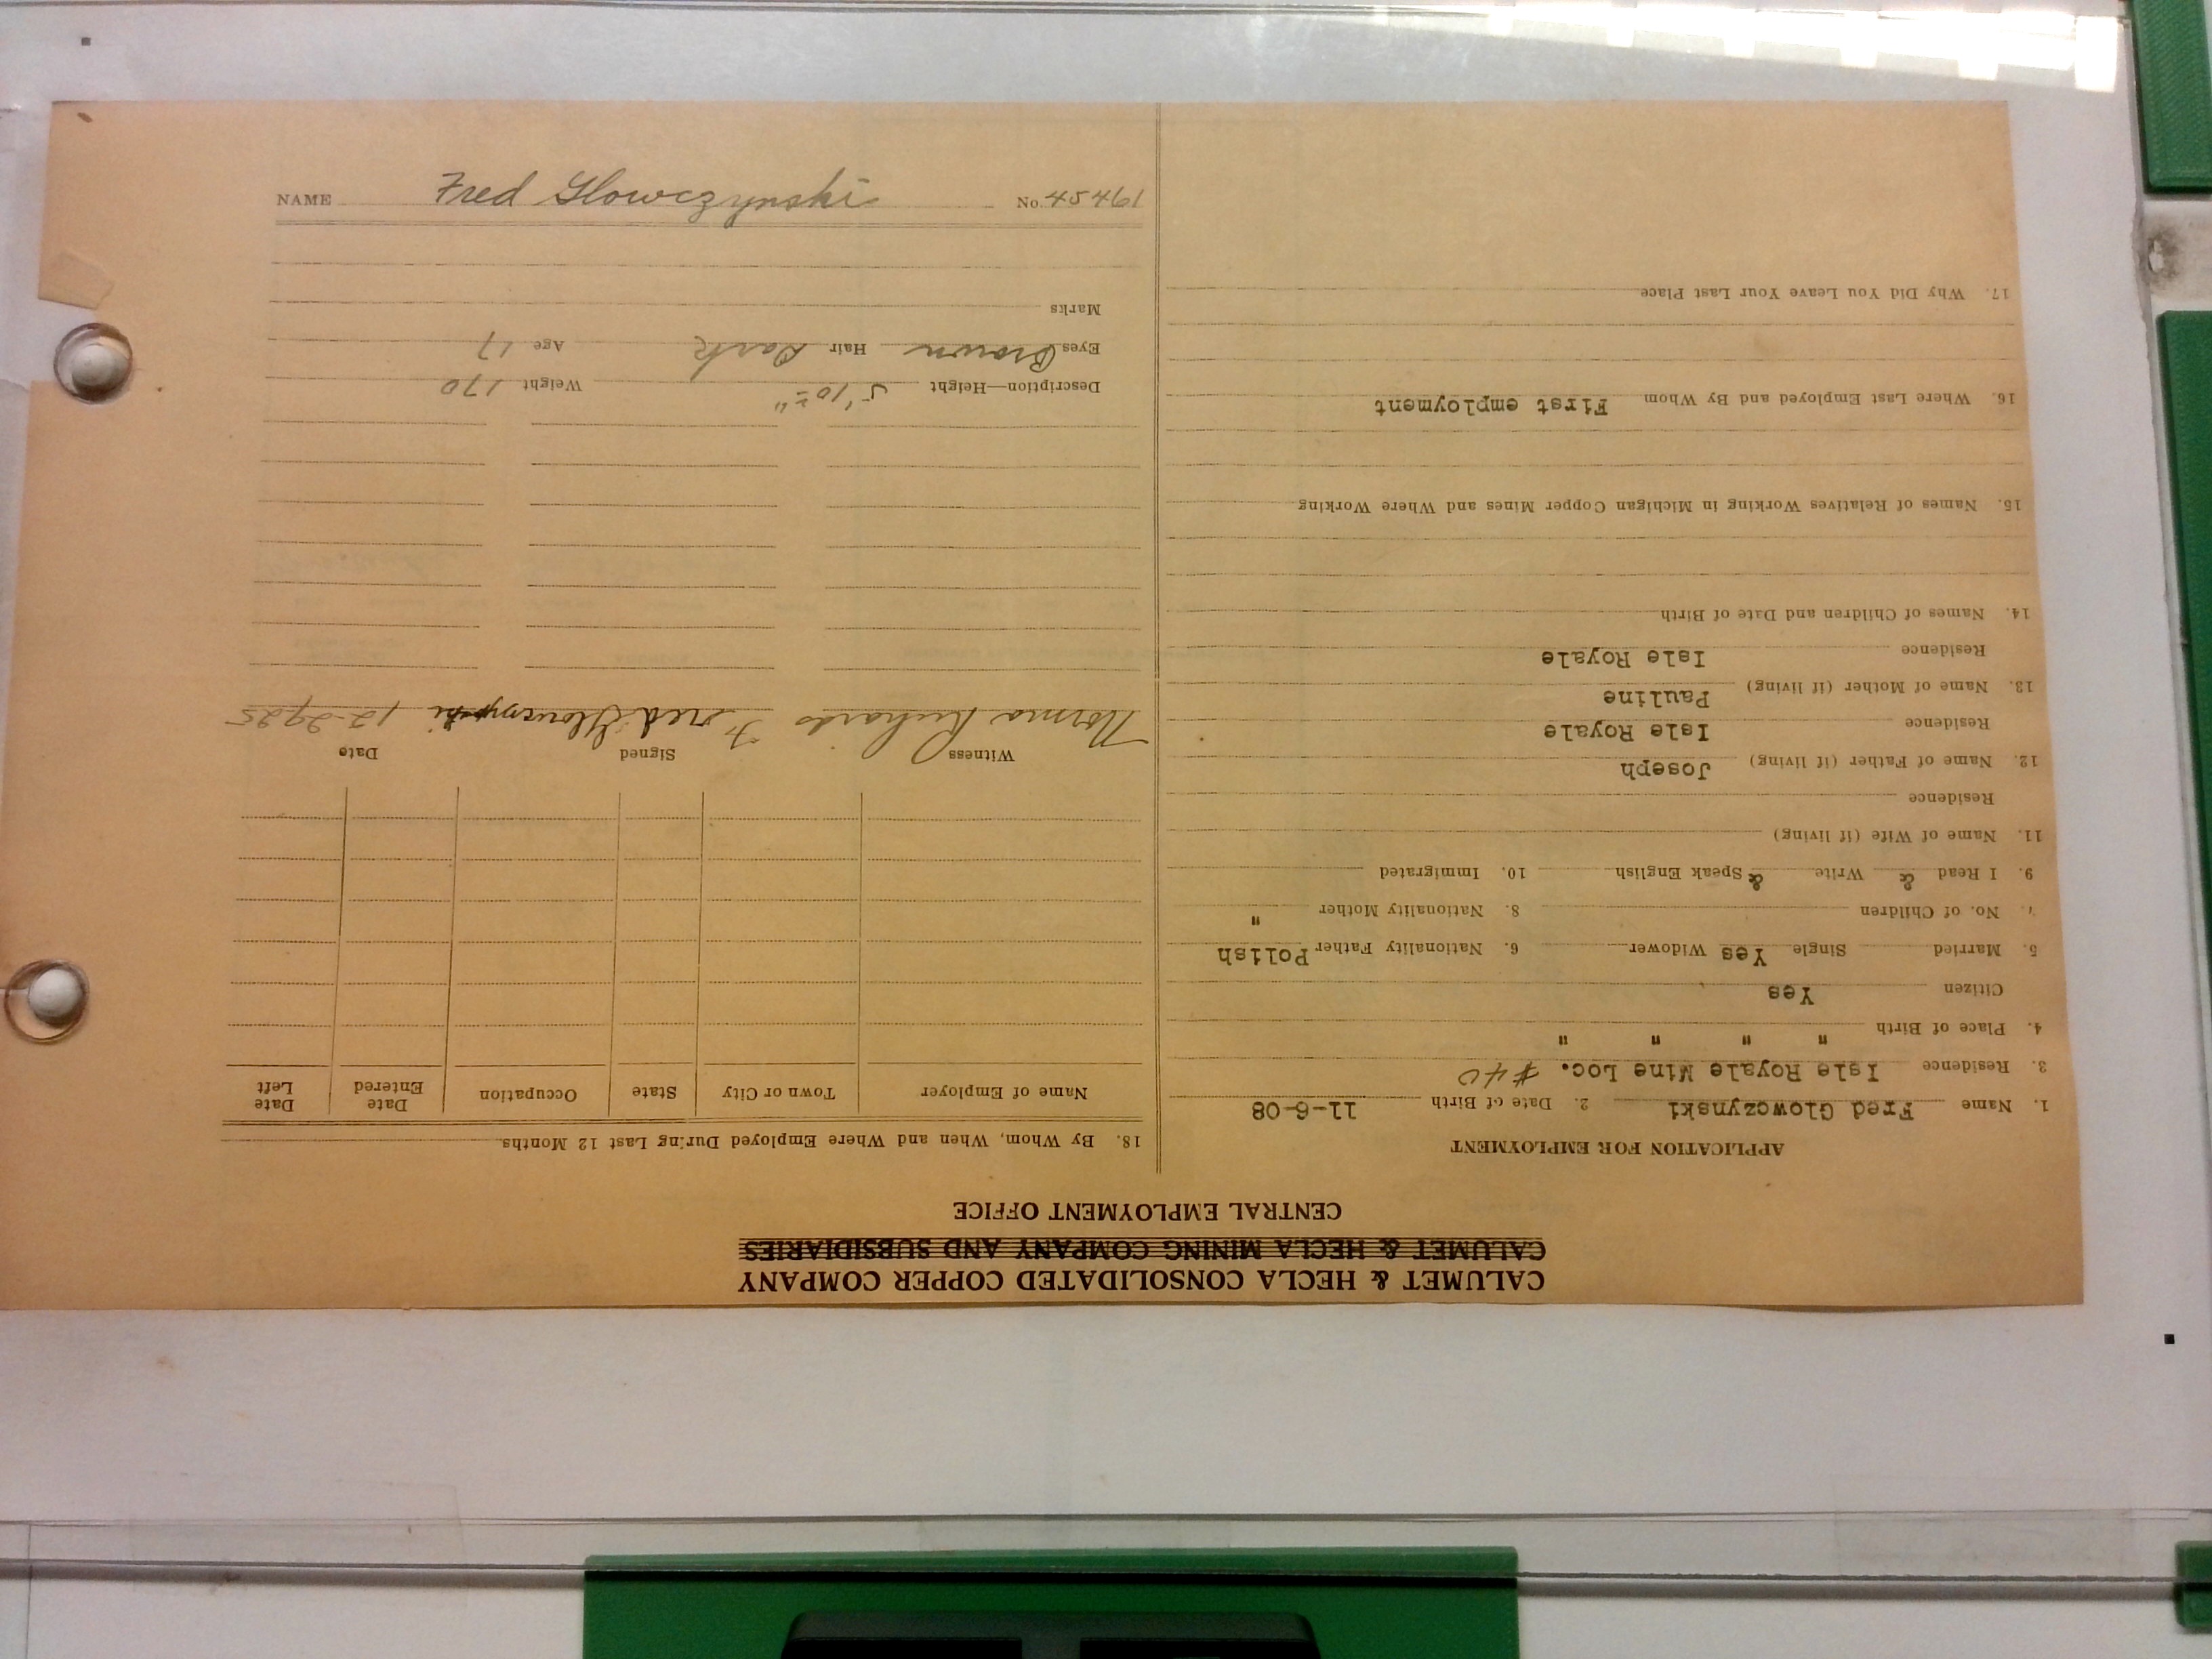 CALUMET & HECLA CONSOLIDATED COPPER COMPANY
CALUMET & HECLA MINING COMPANY AND SUBSIDIARIES
CENTRAL EMPLOYMENT OFFICE
APPLICATION FOR EMPLOYMENT
1. Name Fred Glowczynski 2. Date of Birth 11-6-08
3. Residence Isle Royale Mine Loc. #40
4. Place of Birth " " " "
Citizen Yes
5. Married Single Yes Widower 6. Nationality Father Polish
7. No. of Children 8. Nationality Mother "
9. I Read & Write & Speak English 10. Immigrated
11. Name of Wife (if living)
Residence
12. Name of Father (if living) Joseph
Residence Isle Royale
13. Name of Mother (if living) Pauline
Residence Isle Royale
14. Names of Children and Date of Birth
15. Names of Relatives Working in Michigan Copper Mines and Where Working
16. Where Last Employed and By Whom First employment
17. Why Did You Leave Your Last Place
18. By Whom, When and Where Employed During Last 12 Months
Name of Employer Town or City State Occupation Date Entered Date Left
Witness Signed Date
Norma Richards Fred Glowczynski 12-29-25
Description—Height 5' 10 Weight 170
Eyes Brown Hair Dark Age 17
Marks
NAME Fred Glowczynski No. 45461